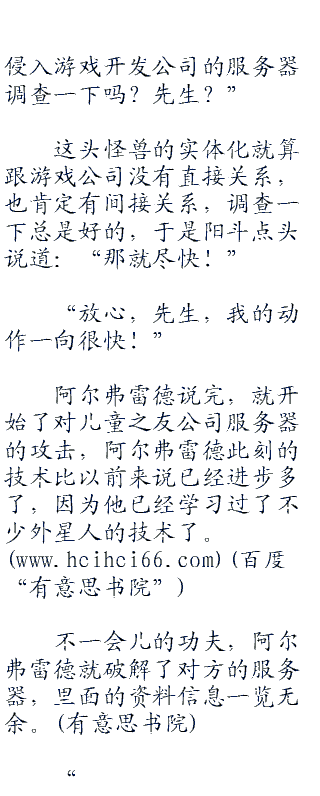 侵入游戏开发公司的服务器
调查一下吗？先生？”
这头怪兽的实体化就算
跟游戏公司没有直接关系，
也肯定有间接关系，调查一
下总是好的，于是阳斗点头
说道：“那就尽快！”
“放心，先生，我的动
作一向很快！”
阿尔弗雷德说完，就开
始了对儿童之友公司服务器
的攻击，阿尔弗雷德此刻的
技术比以前来说已经进步多
了，因为他已经学习过了不
少外星人的技术了。
(www.hcihci66.com)(百度
“有意思书院”)
不一会儿的功夫，阿尔
弗雷德就破解了对方的服务
器，里面的资料信息一览无
余。(有意思书院)
“